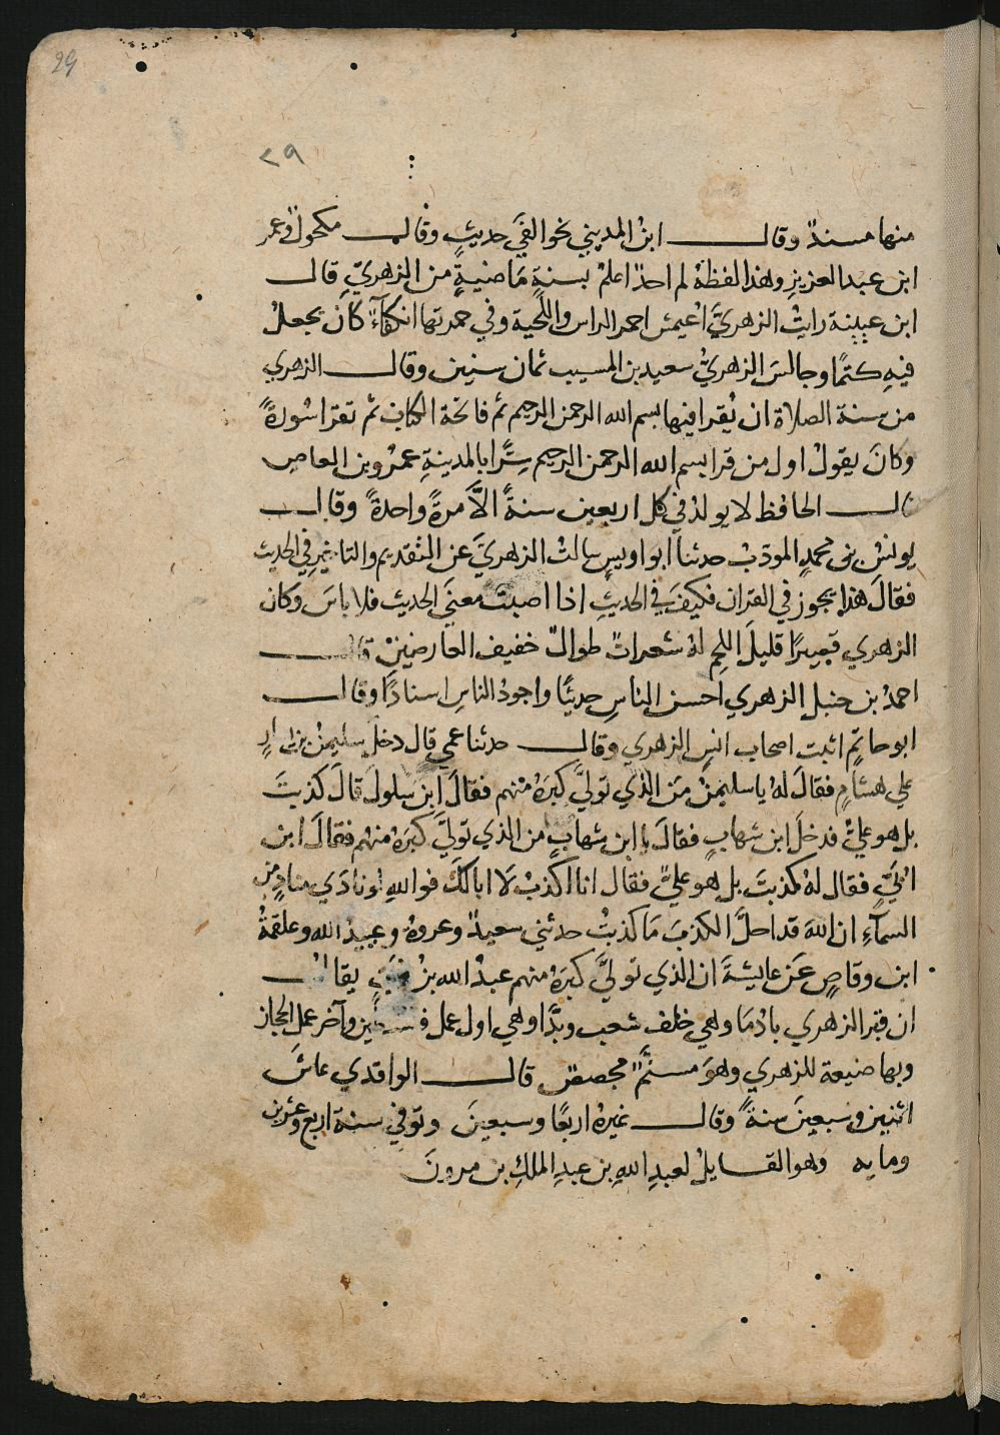 29
٢٩
منها مسندٌ وقال ابنُ المديني نحو الفَي حديثٍ وقال مكحولٌ وعمر
ابن عبد العزيزِ وهذا لفظهُ لم احدٌ اعلمُ بسنةٍ مَاضيةٍ من الزهريِّ قال
ابن عيينة رايتُ الزهريَّ اُعيمش احمر الراس واللّحية وفي حمرتها انكفآءٌ كان يجعلُ
فيهِ كتمًا وجالسَ الزهريُّ سعيد بن المسيب ثمان سنين وقال الزهري
من سنة الصلاة ان يُقرا فيها بسم الله الرحمن الرحيم ثم فاتحة الكتاب ثم تقرا سُورةً
وكانَ يقولُ اول من قرا بسم الله الرحمن الرحيم سِرًّا بالمدينةِ عمرُو بن العاصِ
قال الحافظ لا يولدُ في كل اربعين سنةً الَّا مرةً واحدةً وقال
يونسُ بن محمدٍ المودبُ حدثنا ابو اويسٍ سالتُ الزهريَّ عن التقديم والتاخيرِ في الحديث
فقالَ هذا يجوز في القران فكيفَ في الحديثِ اذا اصبتَ معنَى الحديث فلا باسَ وكان
الزهري قصيرًا قليلَ اللحم لهُ شعراتٌ طوالٌ خفيف العارضَينِ قال
احمدُ بن حنبلٍ الزهري احسن الناسِ حديثًا واجودُ الناسِ اسنادًا وقال
ابو حاتمٍ اثبت اصحاب انسٍ الزهري وقال حدثنا عمي قال دخل سليمنُ بن يسارٍ
علي هشامٍ فقالَ لهُ يا سليمنُ مَن الذي توليَّ كبرَهُ منهم فقالَ ابن سلولَ قالَ كذبتَ
بل هو عليٌّ فدخلَ ابن شهابٍ فقالَ يا ابن شهابٍ من الذي توليَّ كبرَهُ منهم فقالَ ابن
ابيَّ فقال لهُ كذبتَ بل هو عليٌّ فقال انا اكذبُ لَا ابا لكَ فواللهِ لو نادَي منادٍ من
السمآءِ ان اللهَ قد احلَّ الكذبَ مَا كذبتُ حدثني سعيدٌ وعروةُ وعبيدُ الله وعلقمةُ
ابن وقاصٍ عَن عايشةَ ان الذي توليَّ كبرَهُ منهم عبدُ الله بنُ ابيٍّ يقال
ان قبر الزهري بادْمَا وهي خلف شعب وبَدَّا وهي اول عمل فلسطين وآخر عمل الحجاز
وبها ضيعة للزهري وهوَ مسنَّمٌ مجصصٌ قال الواقدي عاشَ
اثنين وسبعينَ سنةً وقال غيرهُ اربعًا وسبعينَ وتوفي سنة اربع وعشرين
وما يه وهو القايلُ لعبدِ اللهِ بن عبدِ الملكِ بن مرونَ